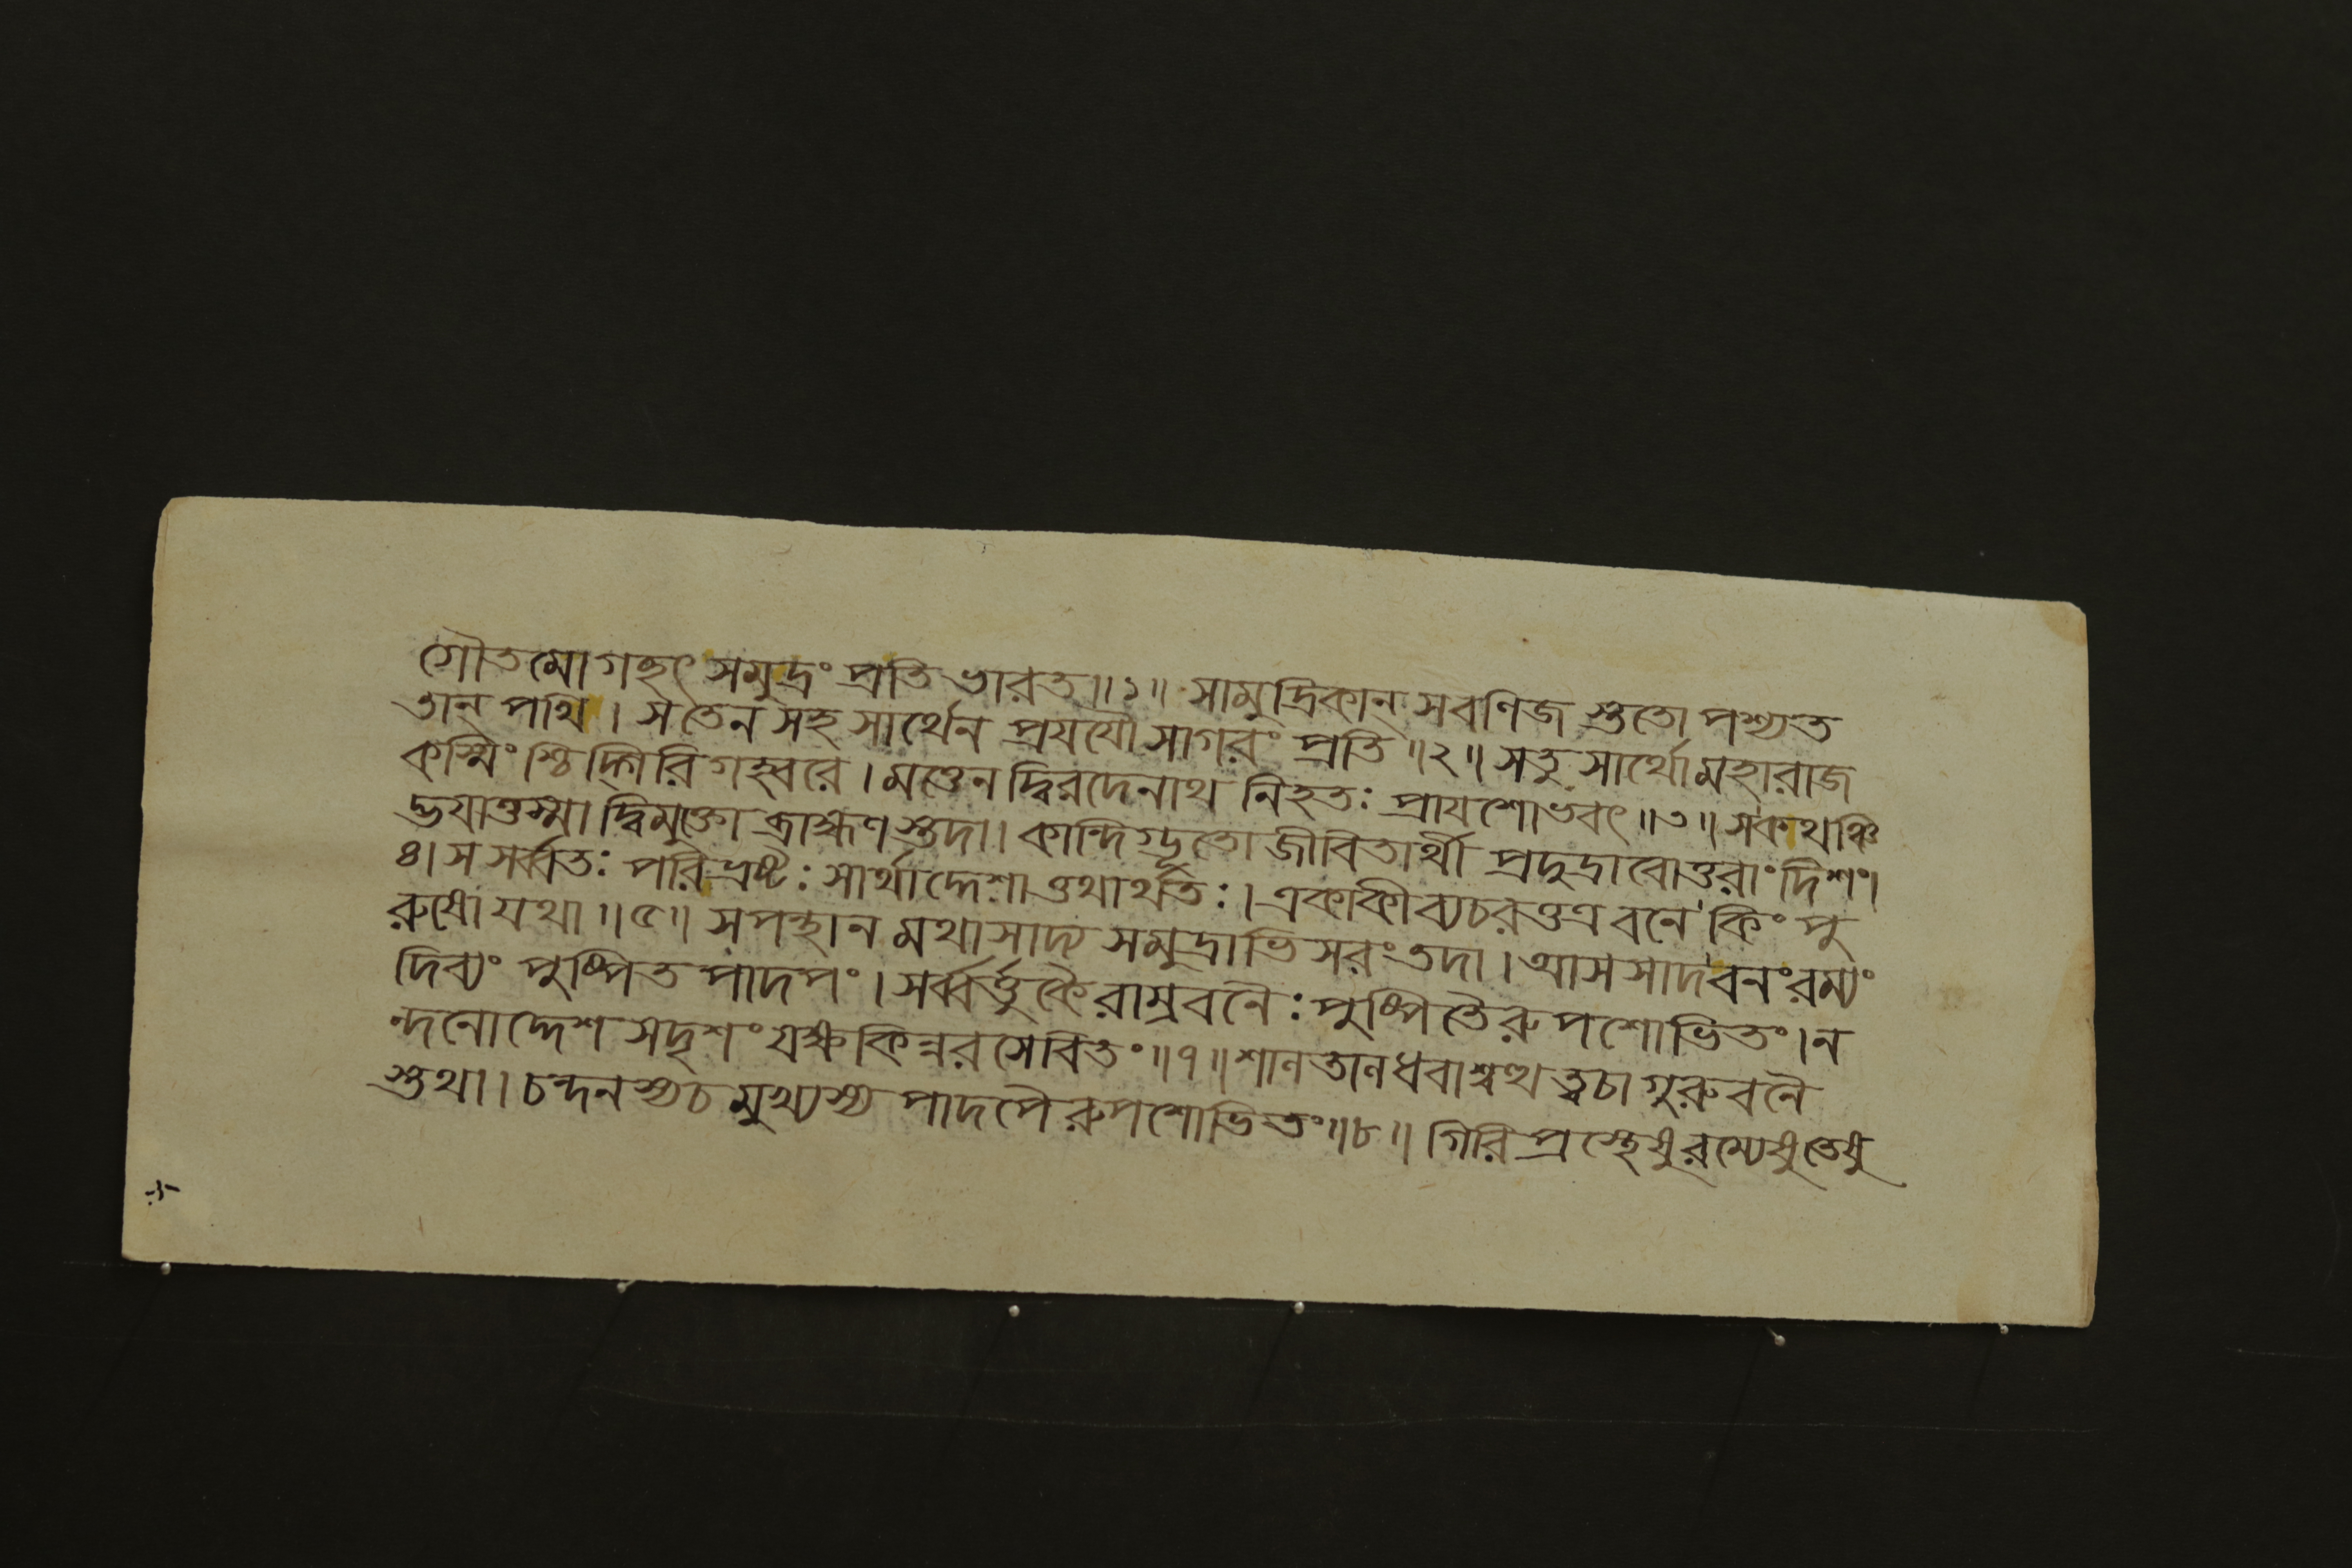 গৌতমো গচ্ছৎ সমুদ্রং প্রতি ভারত॥১॥ সামুদ্রিকান্ সবণিজ স্ততো পশ্যত
তান্ পথি। স তেন সহ সার্থেন প্রযযৌ সাগরং প্রতি॥২॥ সতু সার্থো মহারাজ
কস্মিংশ্চিদ্গিরিগহ্বরে। মত্তেন দ্বিরদেনাথ নিহতঃ প্রাযশোভবৎ॥৩॥ স কথঞ্চি
দ্ভযাত্তস্মাদ্বিমুক্তো ব্রাহ্মণস্তদা। কান্দিগ্ভূতো জীবিতার্থী প্রদুদ্রাবোত্তরাং দিশং।
৪। স সর্ব্বতঃ পরিভ্রষ্টঃ সার্থাদ্দেশাত্তথার্থতঃ। একাকী ব্যচরত্তত্র বনে কিং পু
রুষো যথা॥৫॥ স পন্থানমথাসাদ্য সমুদ্রাভিসরং তদা। আসসাদ বনং রম্যং
দিব্যং পুষ্পিত পাদপং। সর্ব্বর্ত্তুকৈরাম্রবনৈঃ পুষ্পিতৈরুপশোভিতং। ন
ন্দনোদ্দেশ সদৃশং যক্ষকিন্নরসেবিতং॥৭॥ শালতালধবাশ্বত্থত্বচাগুরুবনৈ
স্তথা। চন্দনস্য চ মুখ্যস্য পাদপৈরুপশোভিতং॥৮॥ গিরিপ্রস্থেষু রম্যেষু তেষু